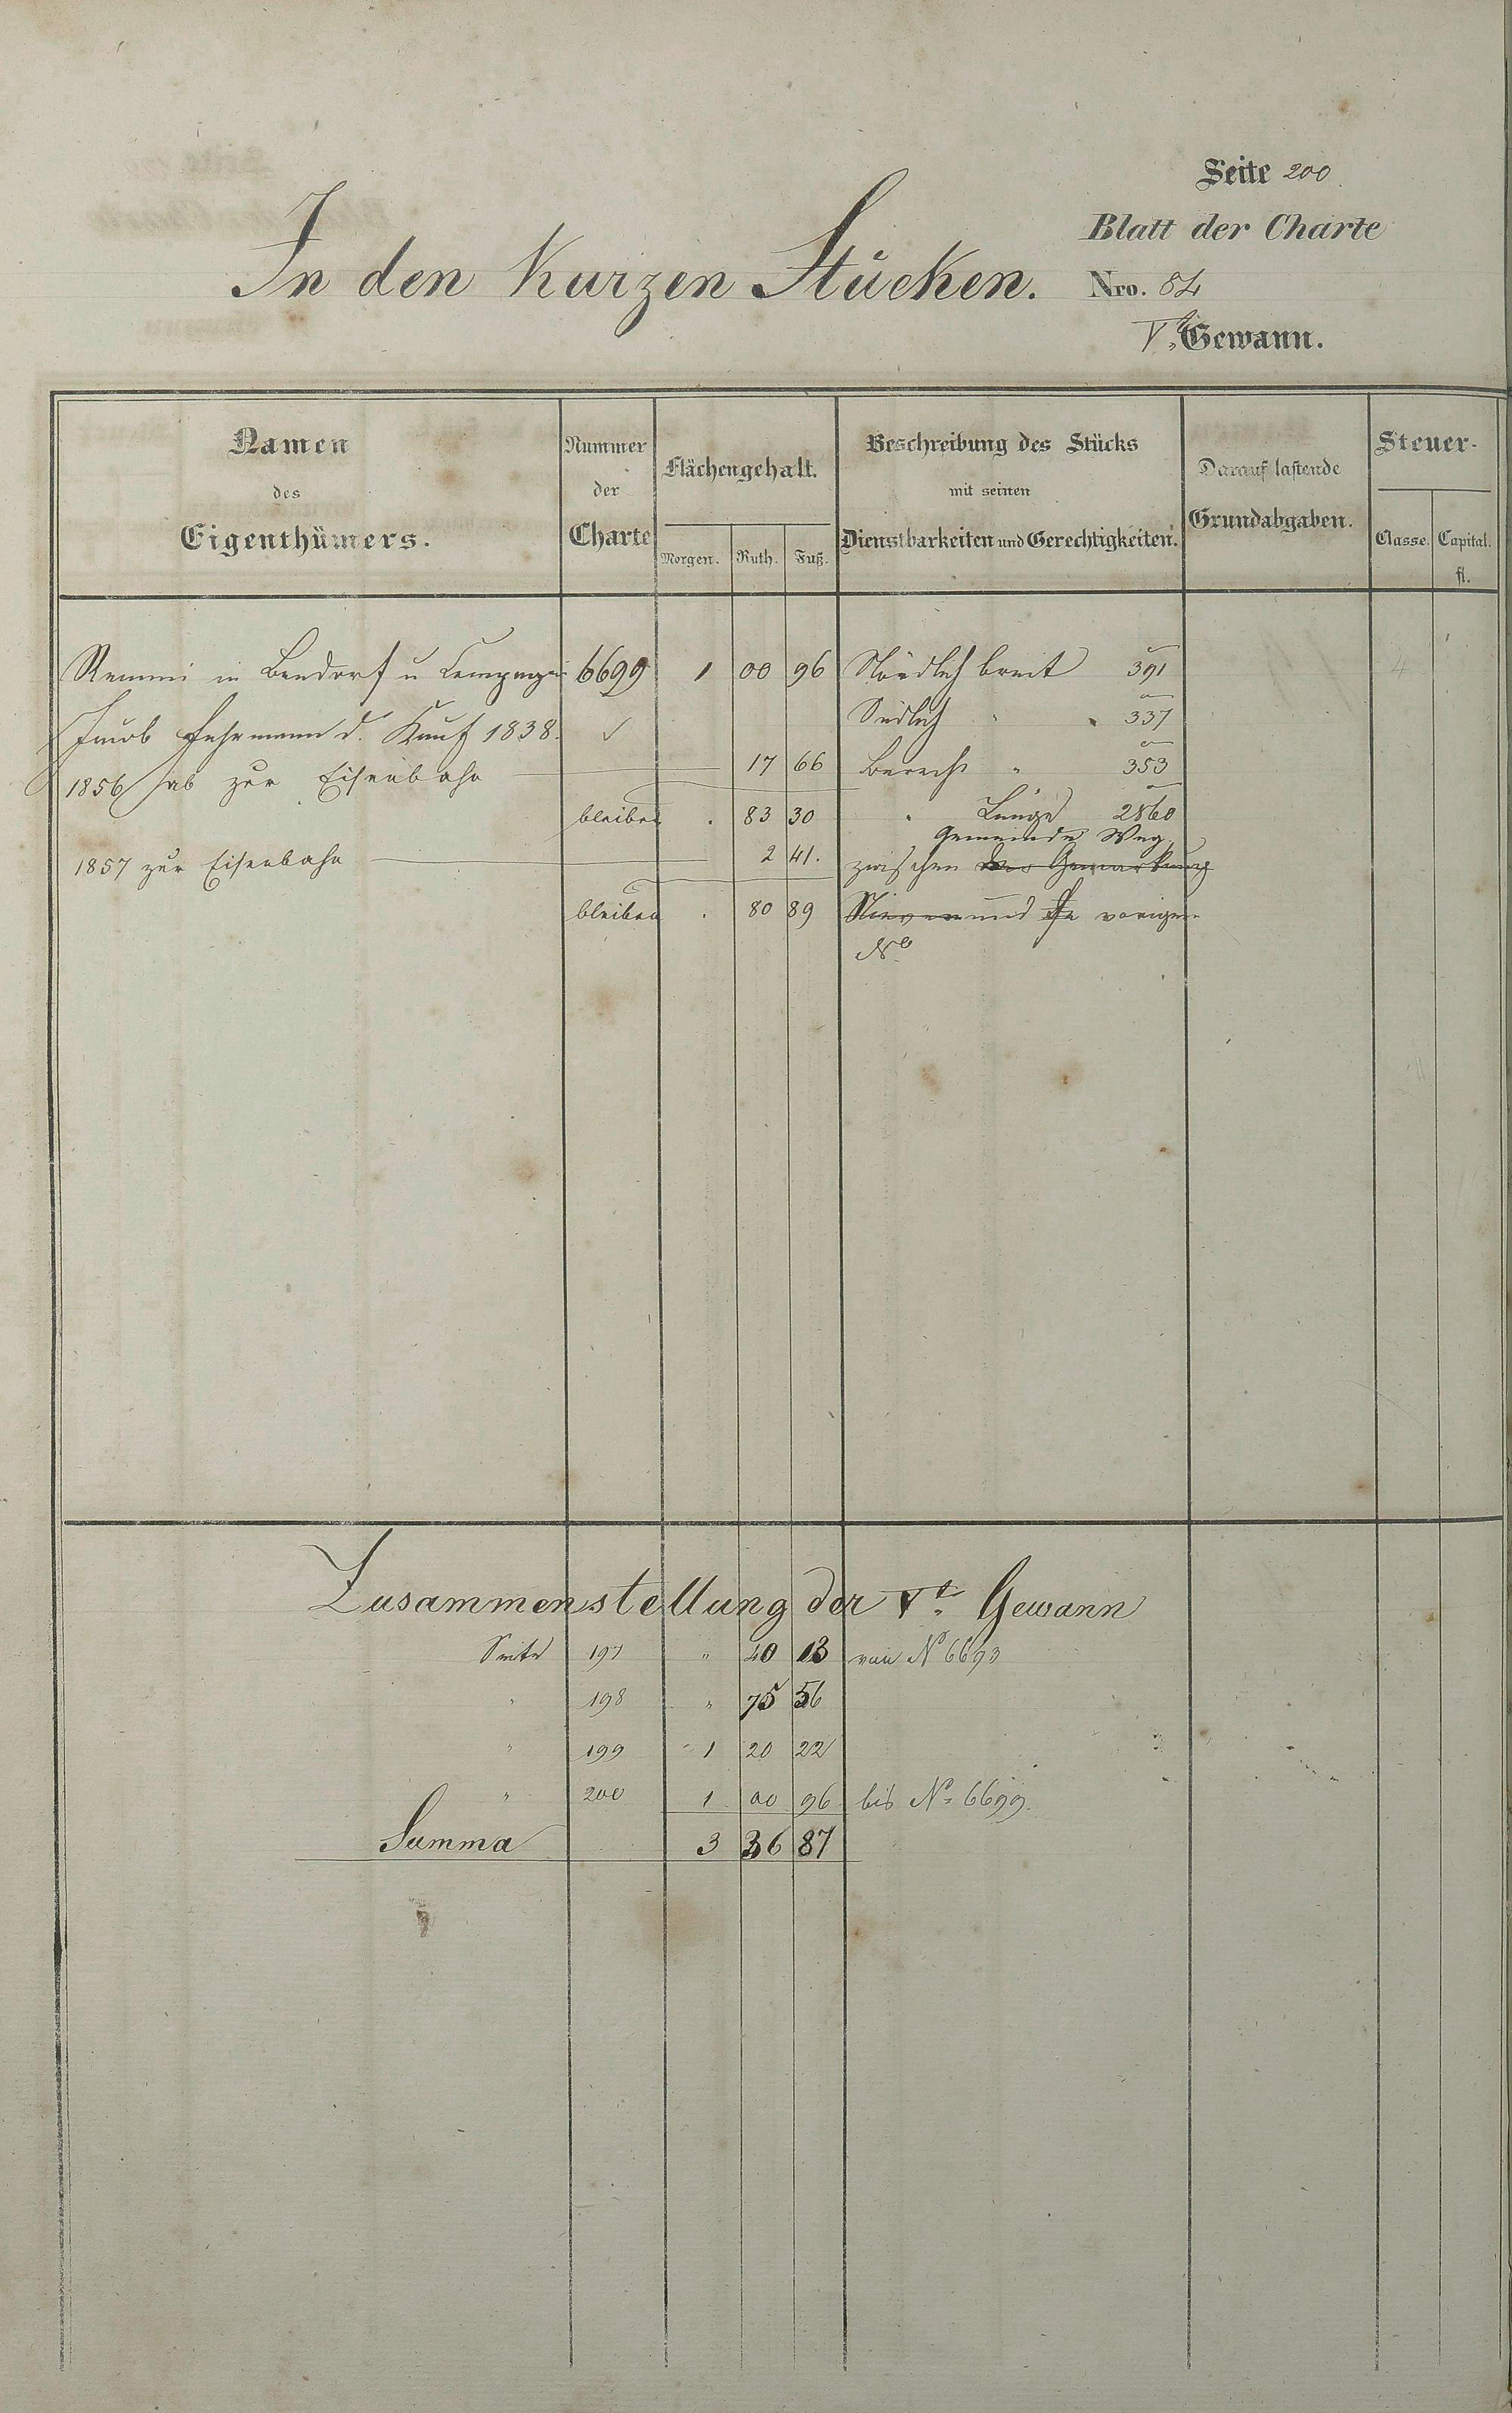 Seite 200
Blatt der Charte
In den Kurzen Stücken. Nro. 84
Vte Gewann.
Namen des Eigenthümers.
Nummer der Charte
Flächengehalt.
Morgen. Ruth. Fuß.
Beschreibung des Stücks mit seinen Dienstbarkeiten und Gerechtigkeiten.
Darauf lastende Grundabgaben.
Steuer-
Classe. Capital. fl.
Remmi in Bendorf u Compagni 6699 1 00 96 Nördlich breit 391 4
Jacob Fuhrmann d. Kauf 1838. ✓ Südlich " " 337
1856 ab zur Eisenbahn 17 66 Berecht " 353
bleiben . 83 30 " Länge 2860
Gemeinde Weg
1857 zur Eisenbahn 2 41. zwischen der Gemarkung
bleiben . 80 89 Nievern und vorigen
No
Zusammenstellung der Vte Gewann
Seite 197 " 40 13 von No 6693
" 198 " 75 56
" 199 1 20 22
" 200 1 00 96 bis No 6699.
Summa 3 36 87